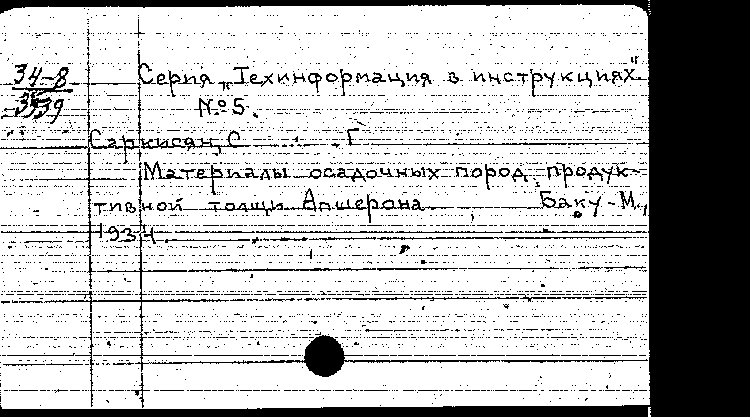 34-8
3539
Серия „Техинформация в инструкциях"
№ 5.
Саркисян, С. Г.
Материалы осадочных пород продук-
тивной толщи Апшерона Баку-М.,
1934.